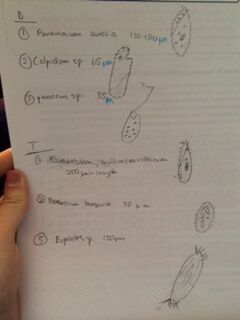 B
① Paramecium aurelia 120-180μm
② Colpidium sp. 65 μm
③ sp. 35 μm
I
① Paramecium
250 μm length
② bursaria μm
③ Euplotes sp 150μm